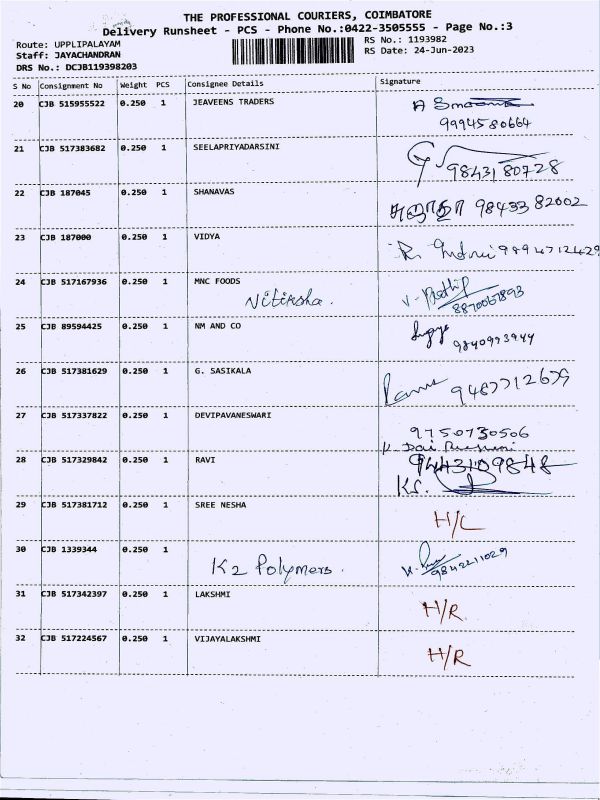 THE PROFESSIONAL COURIERS, COIMBATORE
Delivery Runsheet - PCS - Phone No.:0422-3505555 - Page No.:3
Route: UPPLIPALAYAM RS No.: 1193982
Staff: JAYACHANDRAN RS Date: 24-Jun-2023
DRS No.: DCJB119398203
S No Consignment No Weight PCS Consignee Details Signature
20 CJB 515955522 0.250 1 JEAVEENS TRADERS
9994580664
21 CJB 517383682 0.250 1 SEELAPRIYADARSINI
9843180728
22 CJB 187045 0.250 1 SHANAVAS
சுஜாதா 98433 82002
23 CJB 187000 0.250 1 VIDYA
R. 9894712429
24 CJB 517167936 0.250 1 MNC FOODS
Nitiksha. 8870067893
25 CJB 89594425 0.250 1 NM AND CO
9840993944
26 CJB 517381629 0.250 1 G. SASIKALA
9487712679
27 CJB 517337822 0.250 1 DEVIPAVANESWARI
9750730506
28 CJB 517329842 0.250 1 RAVI
9443109848
KS.
29 CJB 517381712 0.250 1 SREE NESHA
H/C
30 CJB 1339344 0.250 1
K2 Polymers. 9842211029
31 CJB 517342397 0.250 1 LAKSHMI
H/R
32 CJB 517224567 0.250 1 VIJAYALAKSHMI
H/R